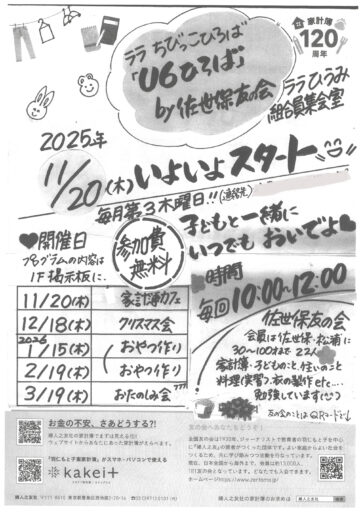 家計簿
120
周年
ララ ちびっこひろば
「U6ひろば」
by 佐世保友の会
ララひうみ
組合員集会室
2025年
11/20(木)いよいよスタート
毎月第3木曜日!!
参加費
無料
子どもと一緒に
いつでもおいでよ
開催日
プログラムの内容は
1F掲示板に。
11/20(木) 家計簿カフェ
12/18(木) クリスマス会
2026
1/15(木) おやつ作り
2/19(木) おやつ作り
3/19(木) おたのしみ会
時間
毎回10:00~12:00
佐世保友の会
会員は佐世保・松浦に
30~100才まで 22人
家計簿・子どものこと、住いのこと
料理(実習)、衣の製作etc...
勉強しています
友の会のことはQRコード↓
お金の不安、さあどうする?!
婦人之友社の家計簿でまずは見える化!
「羽仁もと子案家計簿」がスマホ・パソコンで使える
kakei+
友の会をどうぞ!